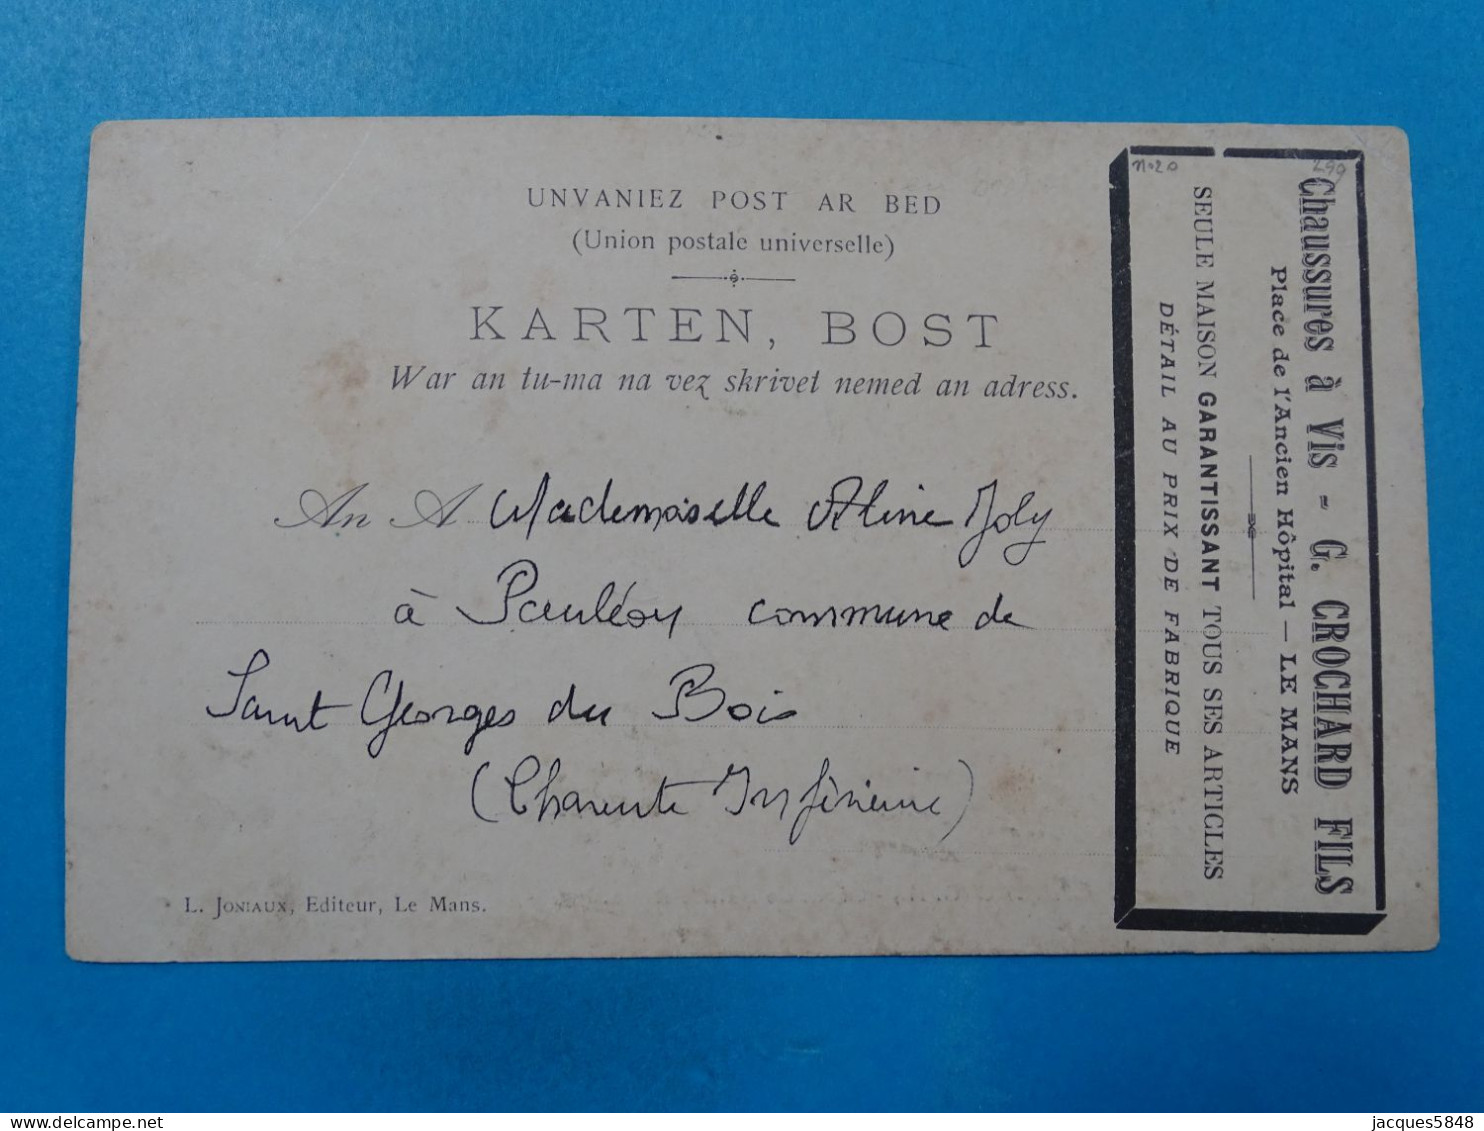 UNVANIEZ POST AR BED
(Union postale universelle)
KARTEN, BOST
War an tu-ma na vez skrivet nemed an adress.
An A Mademoiselle Aline Joly
à Pauléon commune de
Saint Georges du Bois
(Charente Inférieure)
L. JONIAUX, Editeur, Le Mans.
n° 20
299
Chaussures à Vis - G. CROCHARD FILS
Place de l'Ancien Hôpital — LE MANS
SEULE MAISON GARANTISSANT TOUS SES ARTICLES
DÉTAIL AU PRIX DE FABRIQUE
jacques5848